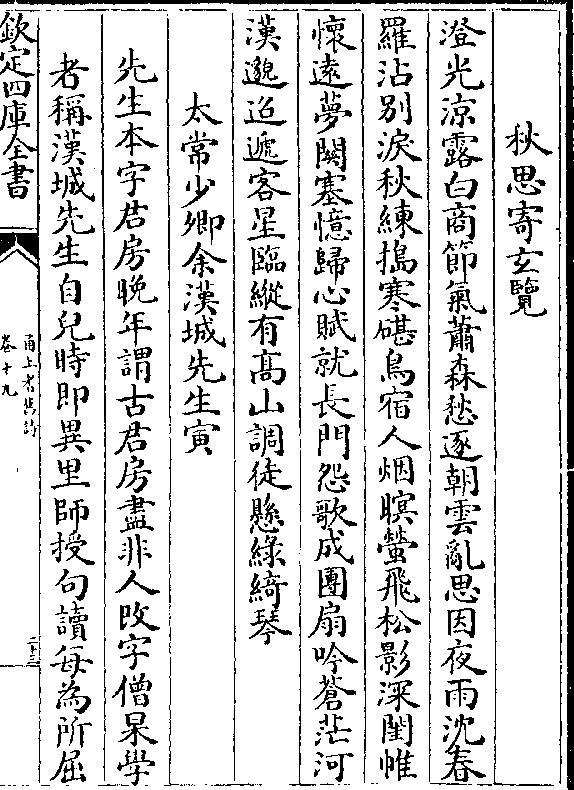 秋思寄玄覽
澄光涼露白商節氣蕭森愁逐朝雲亂思因夜雨沈春
羅沾别淚秋練搗寒碪鳥宿人烟暝螢飛松影深閨帷
懷遠夢闕塞憶歸心賦就長門怨歌成團扇吟蒼茫河
漢邈迢遞客星臨縱有髙山調徒懸綠綺琴
太常少卿余漢城先生寅
先生本字君房晚年謂古君房盡非人改字僧杲學
者稱漢城先生自兒時即異里師授句讀每為所屈
欽定四庫全書
甬上耆舊詩
卷十九
二十三